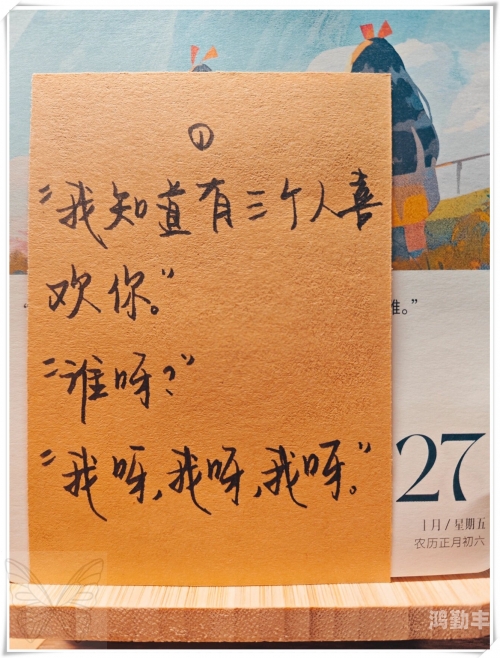 ①
“我知道有三个人喜
欢你。”
“谁呀？”
“我呀，我呀，我呀。”
“
谁。”
27
一月/星期五
农历正月初六
鸿勤丰